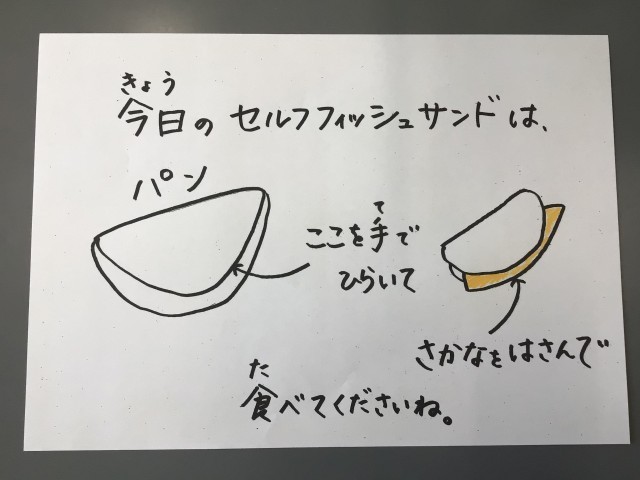 きょう
今日のセルフフィッシュサンドは、
パン
て
ここを手で
ひらいて
さかなをはさんで
た
食べてくださいね。